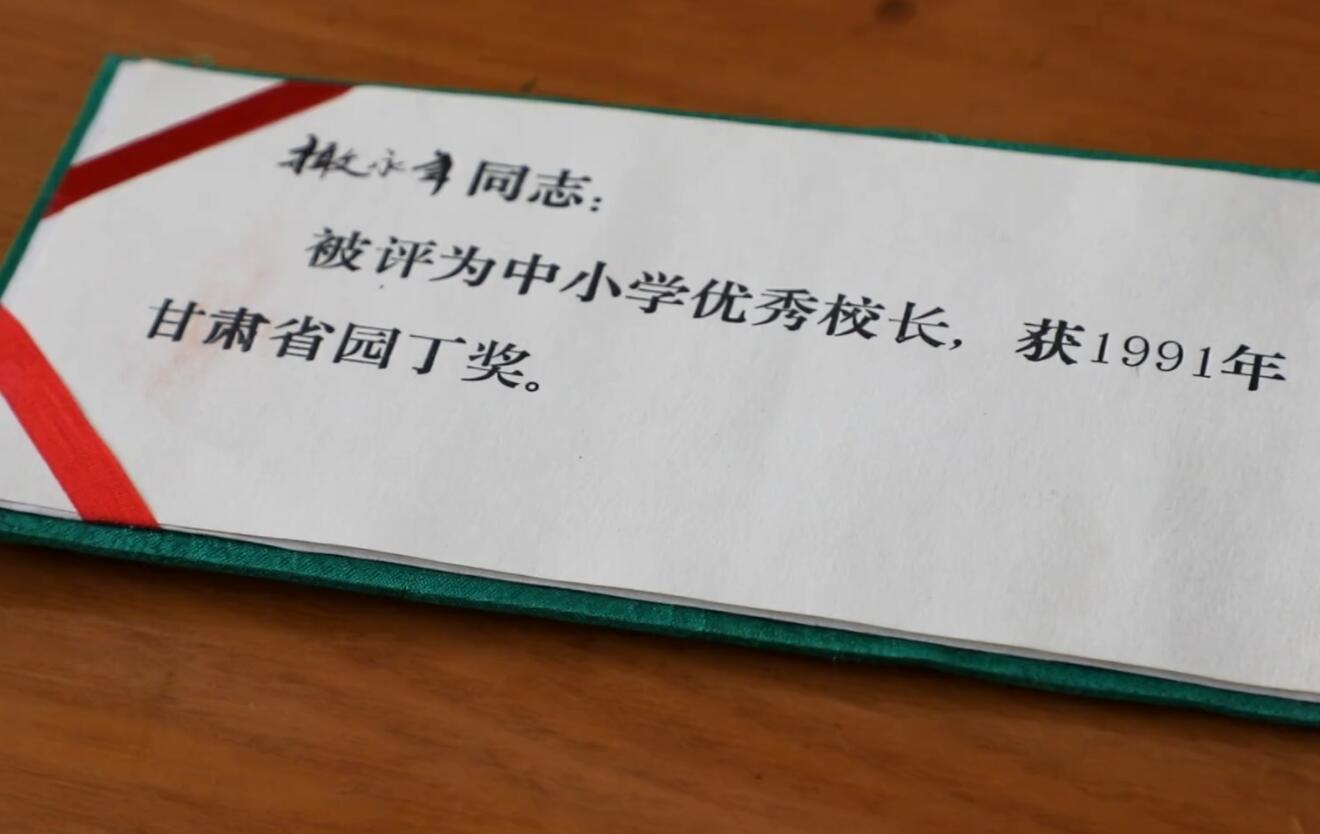 撒永年同志：
被评为中小学优秀校长，获1991年
甘肃省园丁奖。